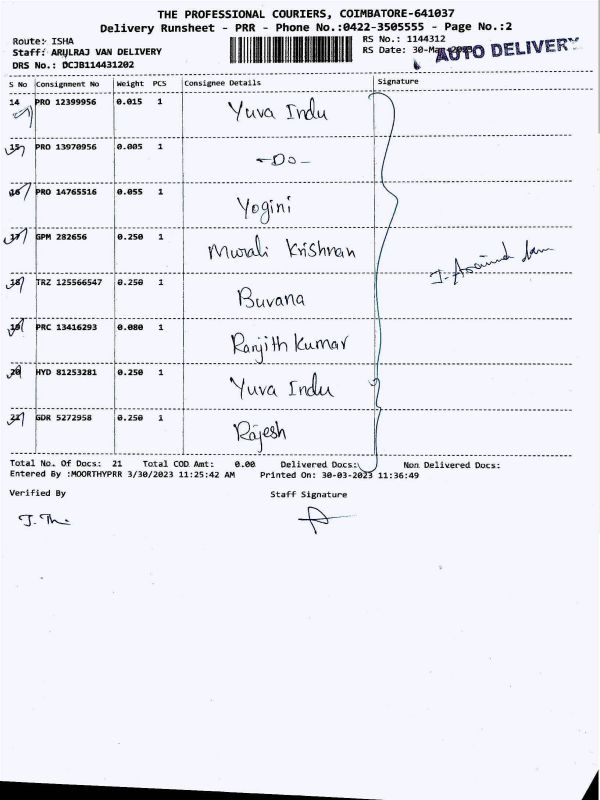 THE PROFESSIONAL COURIERS, COIMBATORE-641037
Delivery Runsheet - PRR - Phone No.:0422-3505555 - Page No.:2
Route: ISHA
RS No.: 1144312
Staff: ARULRAJ VAN DELIVERY
RS Date: 30-Mar-2023
AUTO DELIVERY
DRS No.: DCJB114431202
S No Consignment No Weight PCS Consignee Details Signature
14 PRO 12399956 0.015 1 Yuva Indu
15 PRO 13970956 0.005 1 -Do-
16 PRO 14765516 0.055 1 Yogini
17 GPM 282656 0.250 1 Murali Krishnan
18 TRZ 125566547 0.250 1 Buvana
19 PRC 13416293 0.080 1 Ranjith Kumar
20 HYD 81253281 0.250 1 Yuva Indu
21 GDR 5272958 0.250 1 Rajesh
Total No. Of Docs: 21 Total COD Amt: 0.00 Delivered Docs: Non Delivered Docs:
Entered By :MOORTHYPRR 3/30/2023 11:25:42 AM Printed On: 30-03-2023 11:36:49
Verified By Staff Signature